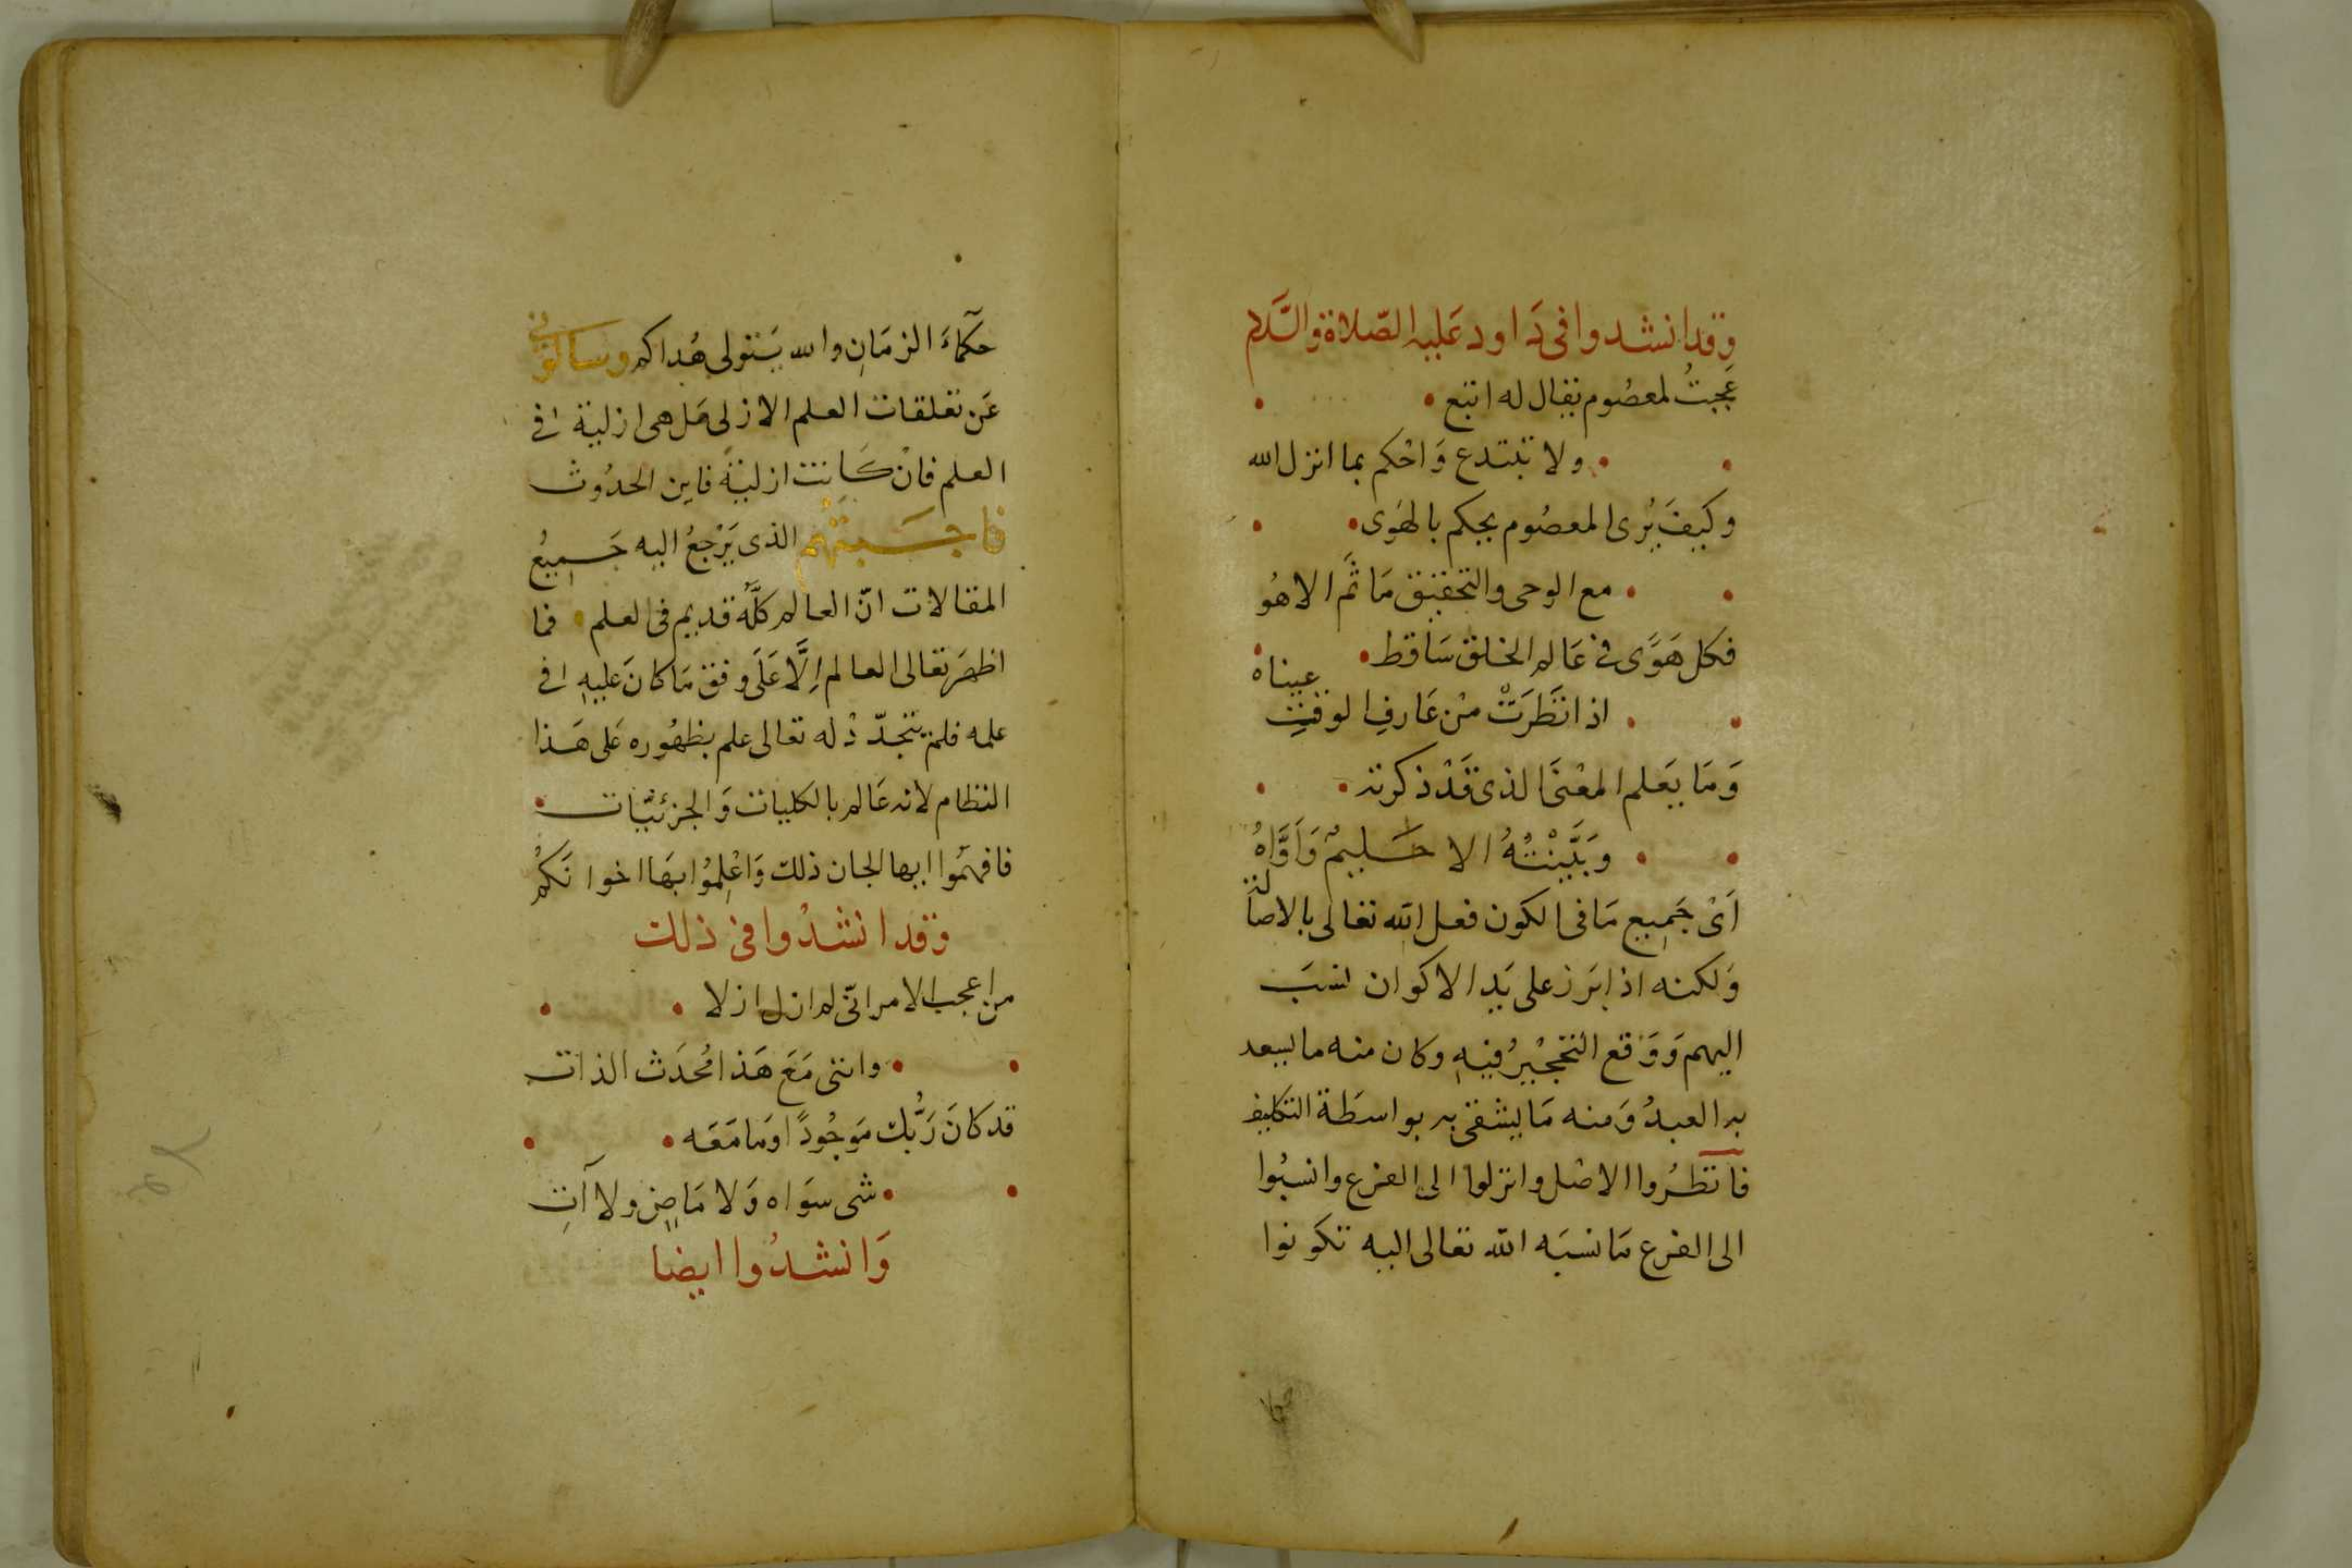 وقد انشدوا فى دَاود عَليه الصّلاة والسَّلام
عَجبتُ لمعصُوم يقال له اتبع
ولا تبتدع وَاحْكم بما انزل الله
وكيفَ يُرى المعصُوم يحكم بالهَوى
مع الوحى والتحقيق مَا ثَم الا هُو
فكل هَوًى فى عَالم الخلق سَاقط
اذا نَظَرَتْ مِنْ عَارفِ الوقتِ عيناه
وَمَا يَعلم المعْنَى الذى قَدْ ذكرته
وبَيَّنْتُهُ الا حَليمٌ وَاَوَّاهُ
اَىْ جَمِيع مَا فى الكون فعل الله تعالى بالاصالة
وَلكنه اذا بَرَز على يَدِ الاكوان نسَبَ
اليهم وَوَقع التحجيْرُ فيهِ وكان منه ما يسعد
به العبدُ وَمنه مَا يشقى به بواسطَة التكليف
فانظُرُوا الاصْل وانزلوا الى الفرع وانسبُوا
الى الفرع مَا نسبَه الله تعالى اليه تكونوا
حكمآءَ الزمَانِ والله يَتولى هُداكم وسالونى
عَن تعلقات العلم الازلى هَل هى ازلية فى
العلم فانْ كَانت ازليةً فاين الحدُوث
فاجَبتُهُم الذى يَرْجعُ اليه جَميعُ
المقالات انّ العالم كلَّه قديم فى العلم فما
اظهَر تعالى العالم اِلَّا عَلَى وفق مَا كانَ عَليهِ فى
علمه فلم يتجدّدْ له تعالى علم بظهُوره عَلى هَذا
النظام لانه عَالم بالكليات وَالجزئيّات
فافهمُوا ايها الجان ذلك وَاعْلِمُوا بهَا اخوانَكُم
وقد انشدُوا فى ذلك
من اعجب الامر انّى لم ازل ازلا
واننى مَعَ هَذا مُحدَث الذات
قد كانَ رَبُّك مَوجُودًا وَمَا مَعَه
شى سوَاه وَلا مَاضٍ ولا آتِ
وَانشدُوا ايضا